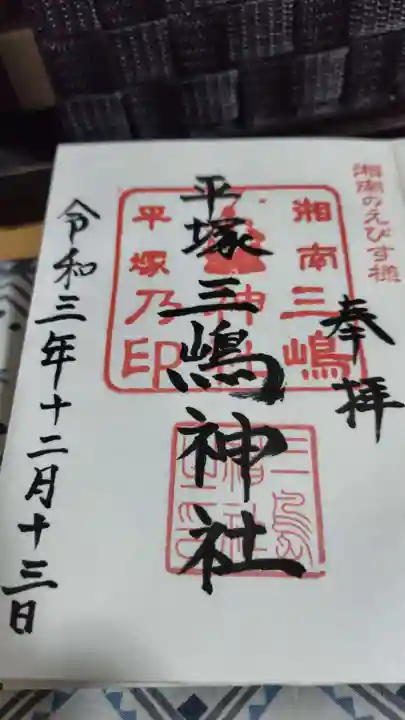 湘南のえびす様
奉拝
湘南三嶋
神社
平塚乃印
平塚三嶋神社
令和三年十二月十三日